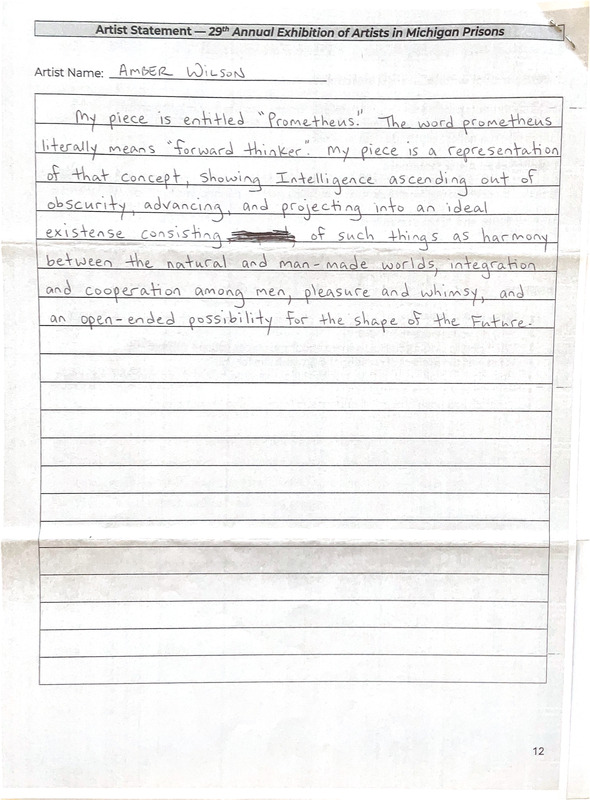 Artist Statement — 29th Annual Exhibition of Artists in Michigan Prisons
Artist Name: AMBER WILSON
My piece is entitled "Prometheus." The word prometheus
literally means "forward thinker". My piece is a representation
of that concept, showing Intelligence ascending out of
obscurity, advancing, and projecting into an ideal
existense consisting of such things as harmony
between the natural and man-made worlds, integration
and cooperation among men, pleasure and whimsy, and
an open-ended possibility for the shape of the Future.
12